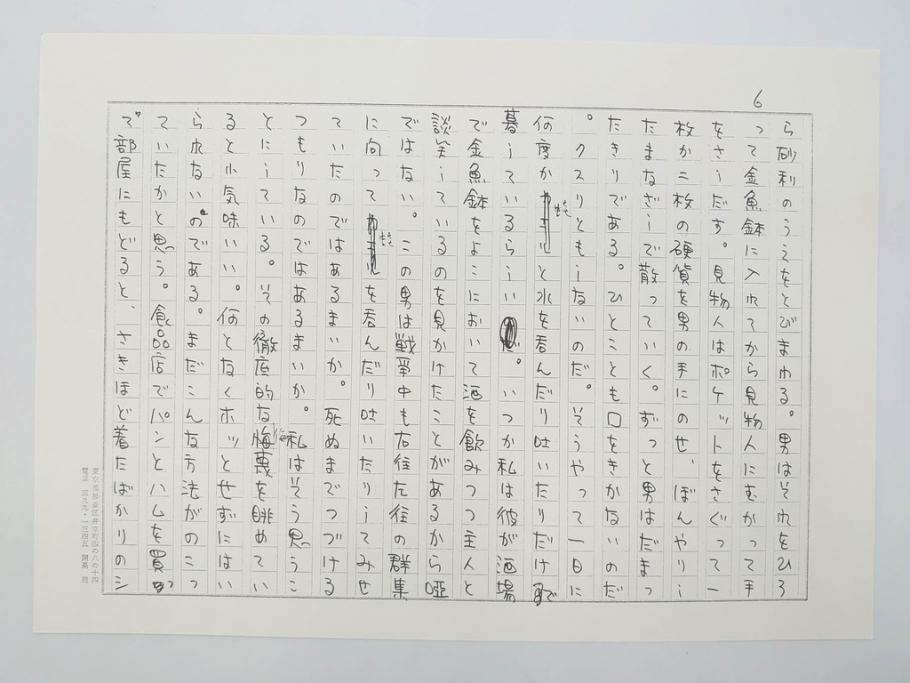 6
ら砂利のうえをとびまわる。男はそれをひろ
って金魚鉢に入れてから見物人にむかって手
をさしだす。見物人はポケットをさぐって一
枚か二枚の硬貨を男の手にのせ、ぼんやりし
たまなざしで散っていく。ずっと男はだまっ
たきりである。ひとことも口をきかないのだ
。クスリともしないのだ。そうやって一日に
何度か と水を呑んだり吐いたりだけで
暮しているらしい。いつか私は彼が酒場
で金魚鉢をよこにおいて酒を飲みつつ主人と
談笑しているのを見かけたことがあるから啞
ではない。この男は戦争中も右往左往の群集
に向って を呑んだり吐いたりしてみせ
ていたのではあるまいか。死ぬまでつづける
つもりなのではあるまいか。私はそう思うこ
とにしている。その徹底的な侮蔑を眺めてい
ると小気味いい。何となくホッとせずにはい
られないのである。まだこんな方法がのこっ
ていたかと思う。食品店でパンとハムを買っ
て部屋にもどると、さきほど着たばかりのシ
東京都杉並区井草町四の八の十四
電話 三九九・一三四五 開高 健